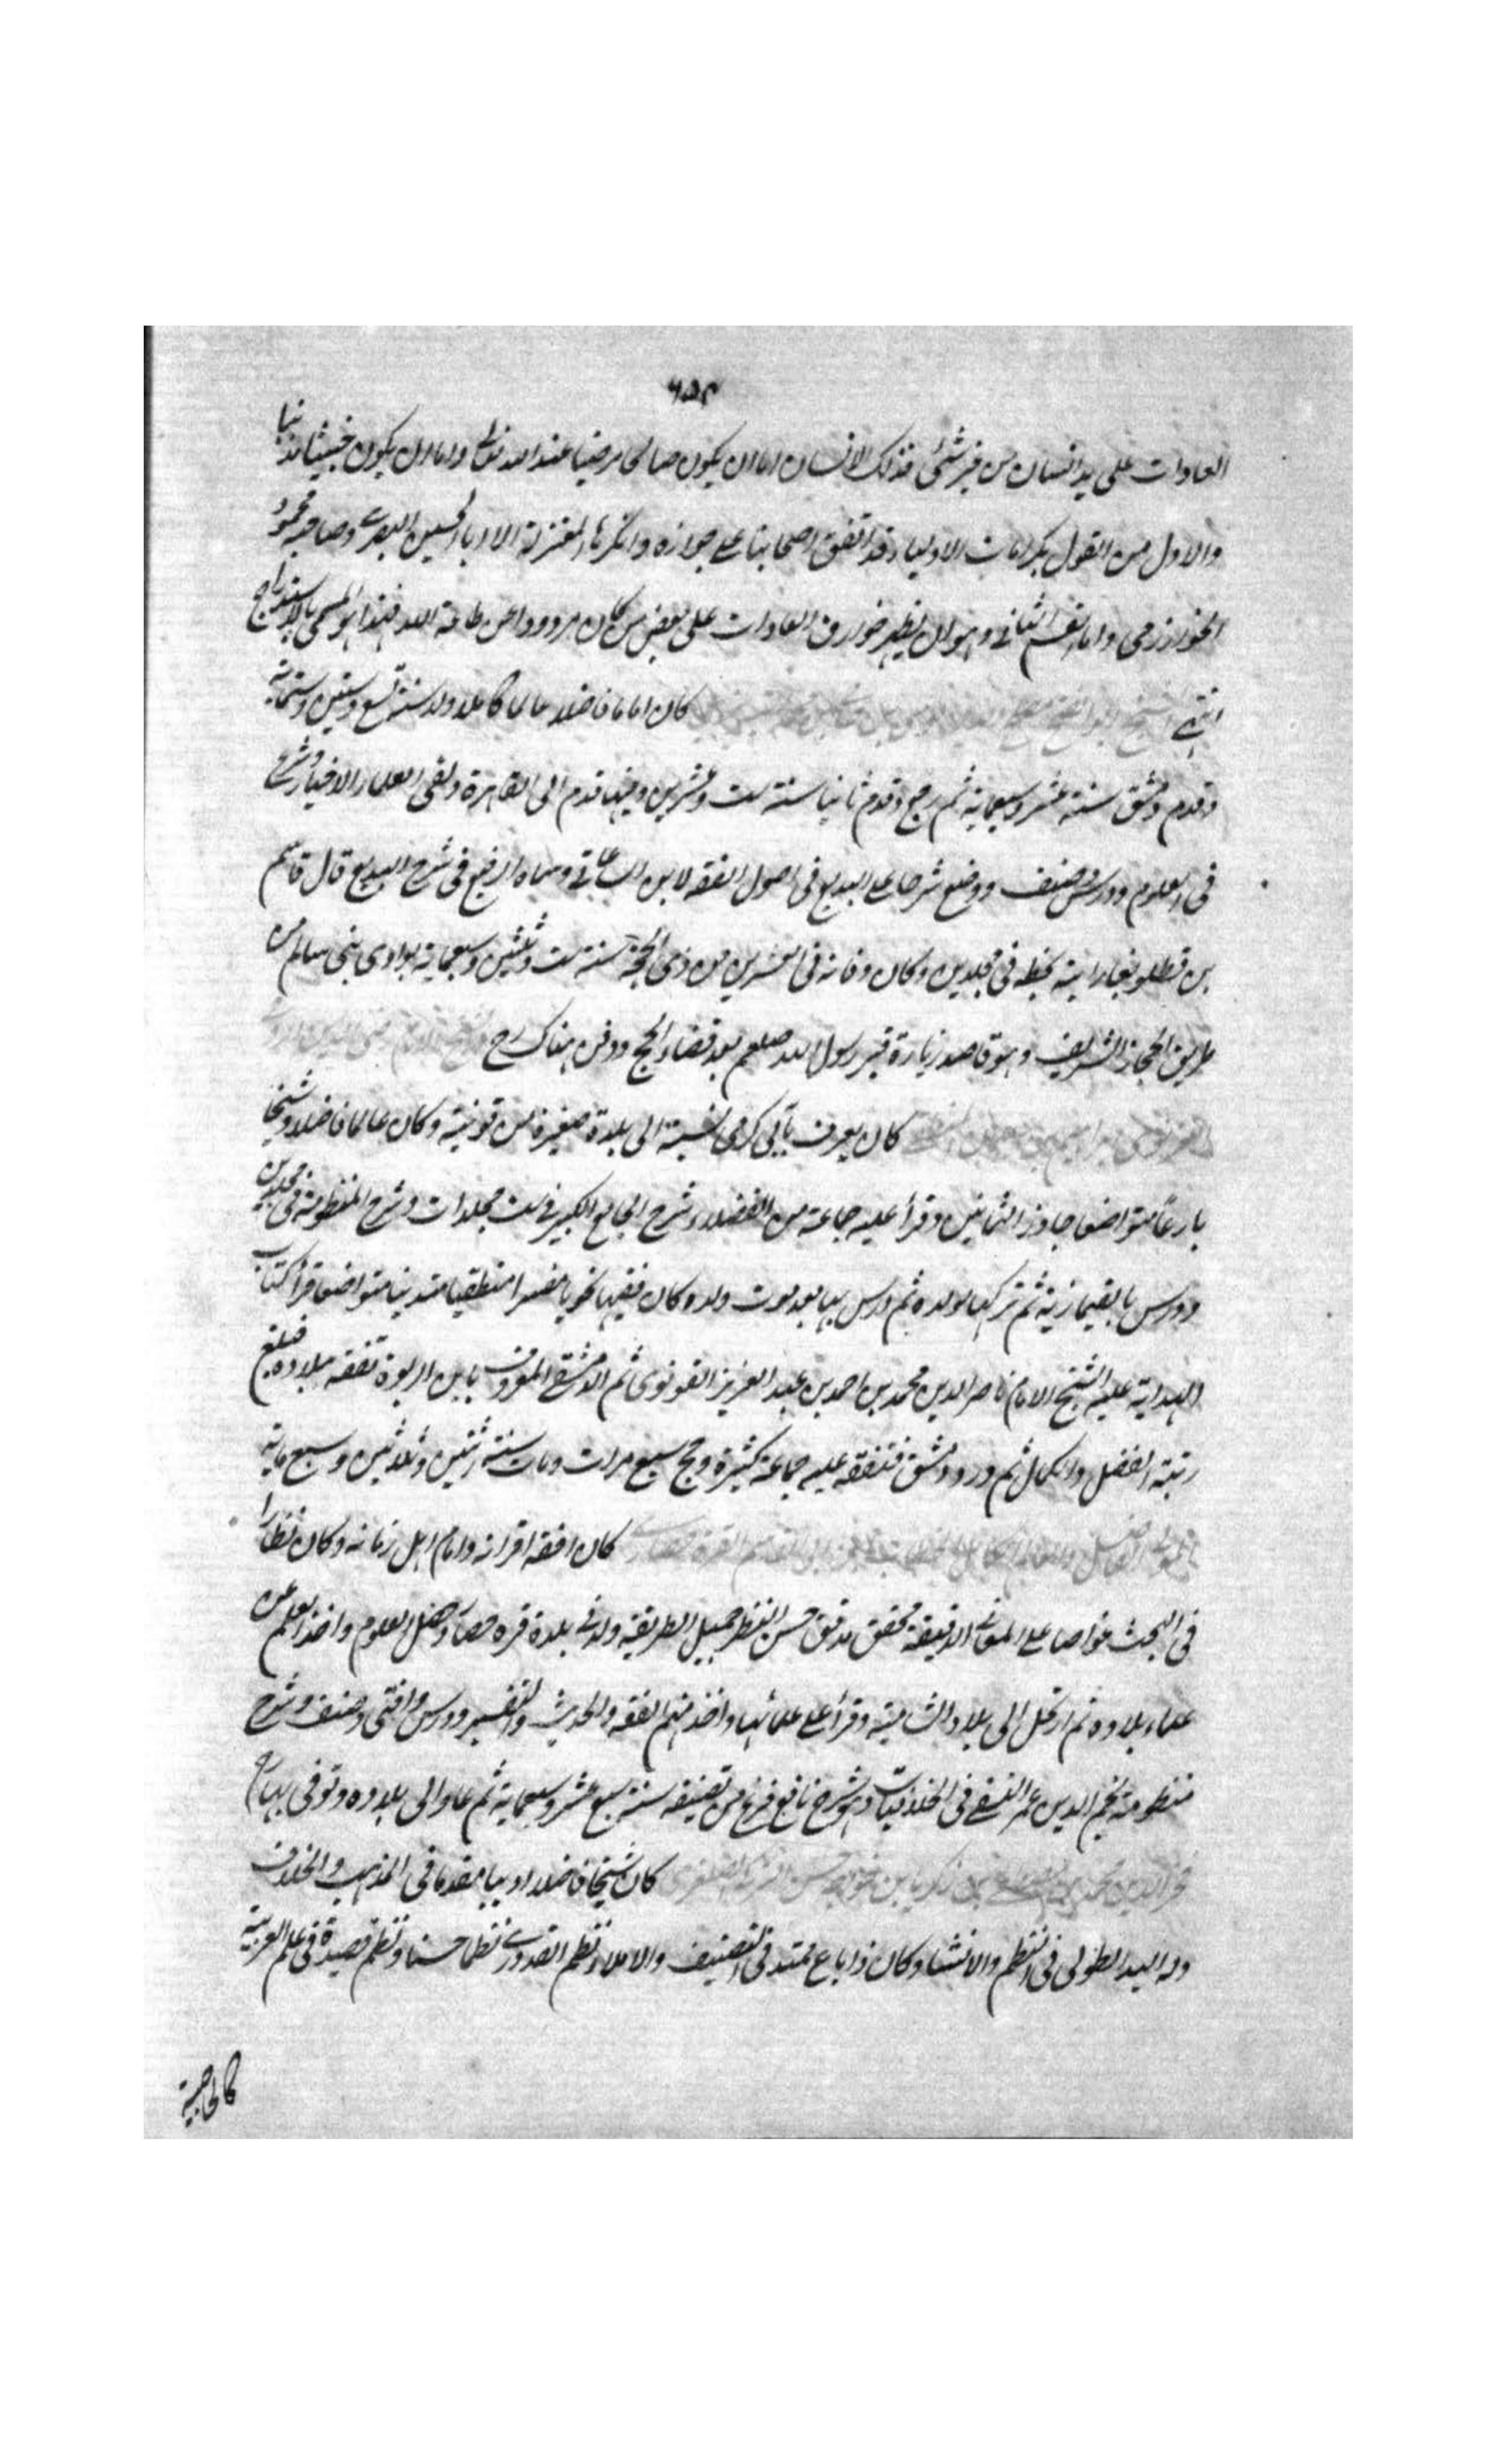 ٦٥٣
العادات على يد انسان من غير شئ فذلك الانسان اما ان يكون صالحا مرضيا عند الله تعالى واما ان يكون خبيثا مذنبا
والاول من القول بكرامات الاولياء وقد اتفق اصحابنا على جوازه وانكرها المعتزلة الا ابا الحسين البصرى وصاحبه محمود
الخوارزمى واما القسم الثانى وهو ان يظهر خوارق العادات على بعض من كان مردودا عن طاعة الله فهذا هو المسمى بالاستدراج
انتهى الشيخ كان اماما فاضلا عالما كاملا ولد سنة تسع وستين وستماية
وقدم دمشق سنة عشر وسبعماية ثم رجع وقدم ثانيا سنة ست وعشرين وفيها قدم الى القاهرة ولقى العلماء الاخيار وشرع
فى العلوم ودرس وصنف ووضع شرحا على البديع فى اصول الفقه لابن الساعاتى وسماه الرفيع فى شرح البديع قال قاسم
بن قطلوبغا رايته بخطه فى مجلدين وكان وفاته فى العشرين من ذى الحجة سنة ست وثلثين وسبعماية بوادى بنى سالم من
طريق الحجاز الشريف وهو قاصد زيارة قبر رسول الله صلعم بعد قضاء الحج ودفن هناك رح
كان يعرف بآبى كرمى نسبة الى بلدة صغيرة من قونية وكان عالما فاضلا وشيخا
بارعاً متواضعا جاوز الثمانين وقرأ عليه جماعة من الفضلاء شرح الجامع الكبير فى ست مجلدات وشرح المنظومة فى مجلدين
ودرس بالقيمازية ثم تركها لولده ثم درس بها بعد موت ولده وكان فقيها نحويا مفسرا منطقيا متدينا متواضعا قرأ كتاب
الهداية عليه الشيخ الامام ناصر الدين محمد بن احمد بن عبد العزيز القونوى ثم الدمشقى المعروف بابن الربوة تفقه ببلاده فبلغ
رتبة الفضل والكمال ثم ورد دمشق فتفقه عليه جماعة كثيرة وحج سبع مرات ومات سنة اثنين وثلاثين وسبع ماية
كان افقه اقرانه وامام اهل زمانه وكان نظارا
فى البحث غواصا على المعانى الدقيقة محقق مدقق حسن النظر جميل الطريقة ولد فى بلدة قره حصار وحصل العلوم واخذ العلم عن
علماء بلاده ثم ارتحل الى بلاد الشامية وقرأ على علمائها واخذ منهم الفقه والحديث والتفسير ودرس وافتى وصنف وشرح
منظومة نجم الدين عمر النسفى فى الخلافيات وهو شرح نافع فرغ من تصنيفه سنة سبع عشر وسبعماية ثم عاد الى بلاده وتوفى بها رح
كان شيخا فاضلا اديبا مقدما فى المذهب والخلاف
وله اليد الطولى فى النظم والانشاء وكان ذا باع ممتد فى التصنيف والاملاء نظم القدورى نظما حسنا ونظم قصيدة فى علم العربية
كالحاجبية